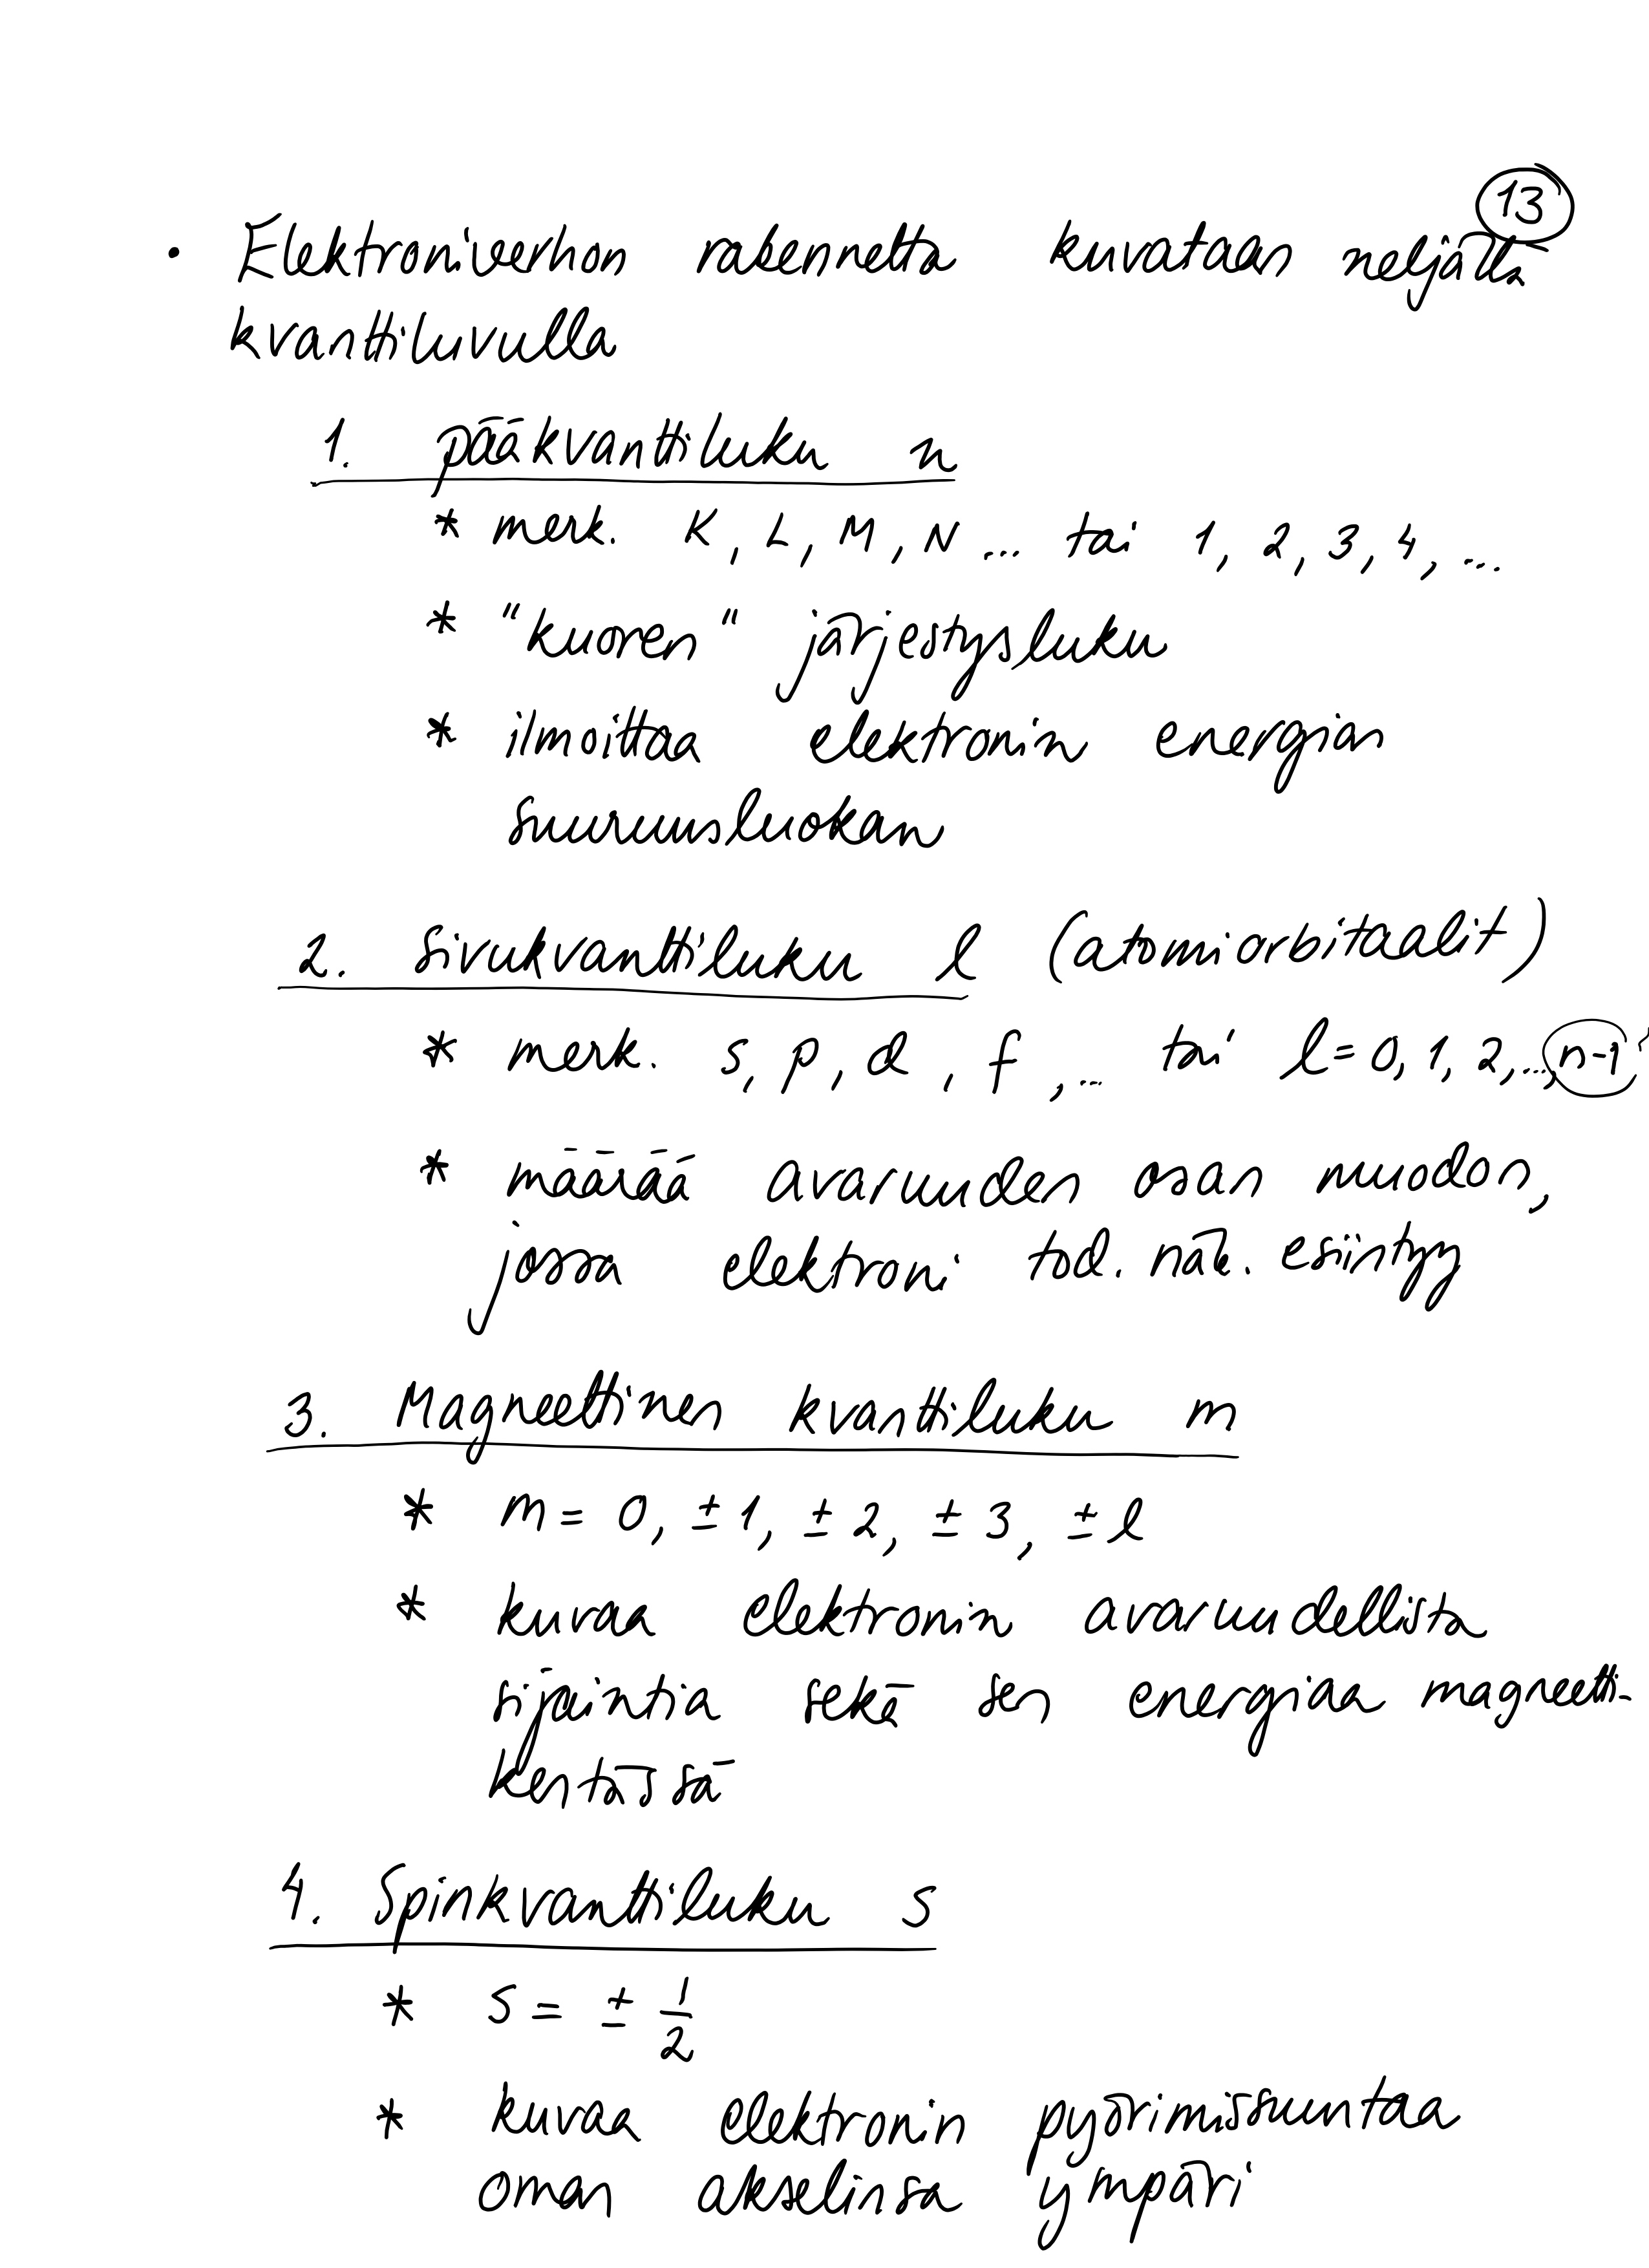 13
• Elektroniverhon rakennetta kuvataan neljällä
kvanttiluvulla
1. pääkvanttiluku n
* merk. K, L, M, N ... tai 1, 2, 3, 4, ...
* "kuoren" järjestysluku
* ilmoittaa elektronin energian
suuruusluokan
2. Sivukvanttiluku l (atomiorbitaalit)
* merk. s, p, d, f, ... tai l = 0, 1, 2, ..., n-1
* määrää avaruuden osan muodon,
jossa elektroni tod. näk. esiintyy
3. Magneettinen kvanttiluku m
* m = 0, ± 1, ± 2, ± 3, ± l
* kuvaa elektronin avaruudellista
sijaintia sekä sen energiaa magneetti-
kentässä
4. Spinkvanttiluku s
* s = ± 1/2
* kuvaa elektronin pyörimissuuntaa
oman akselinsa ympäri